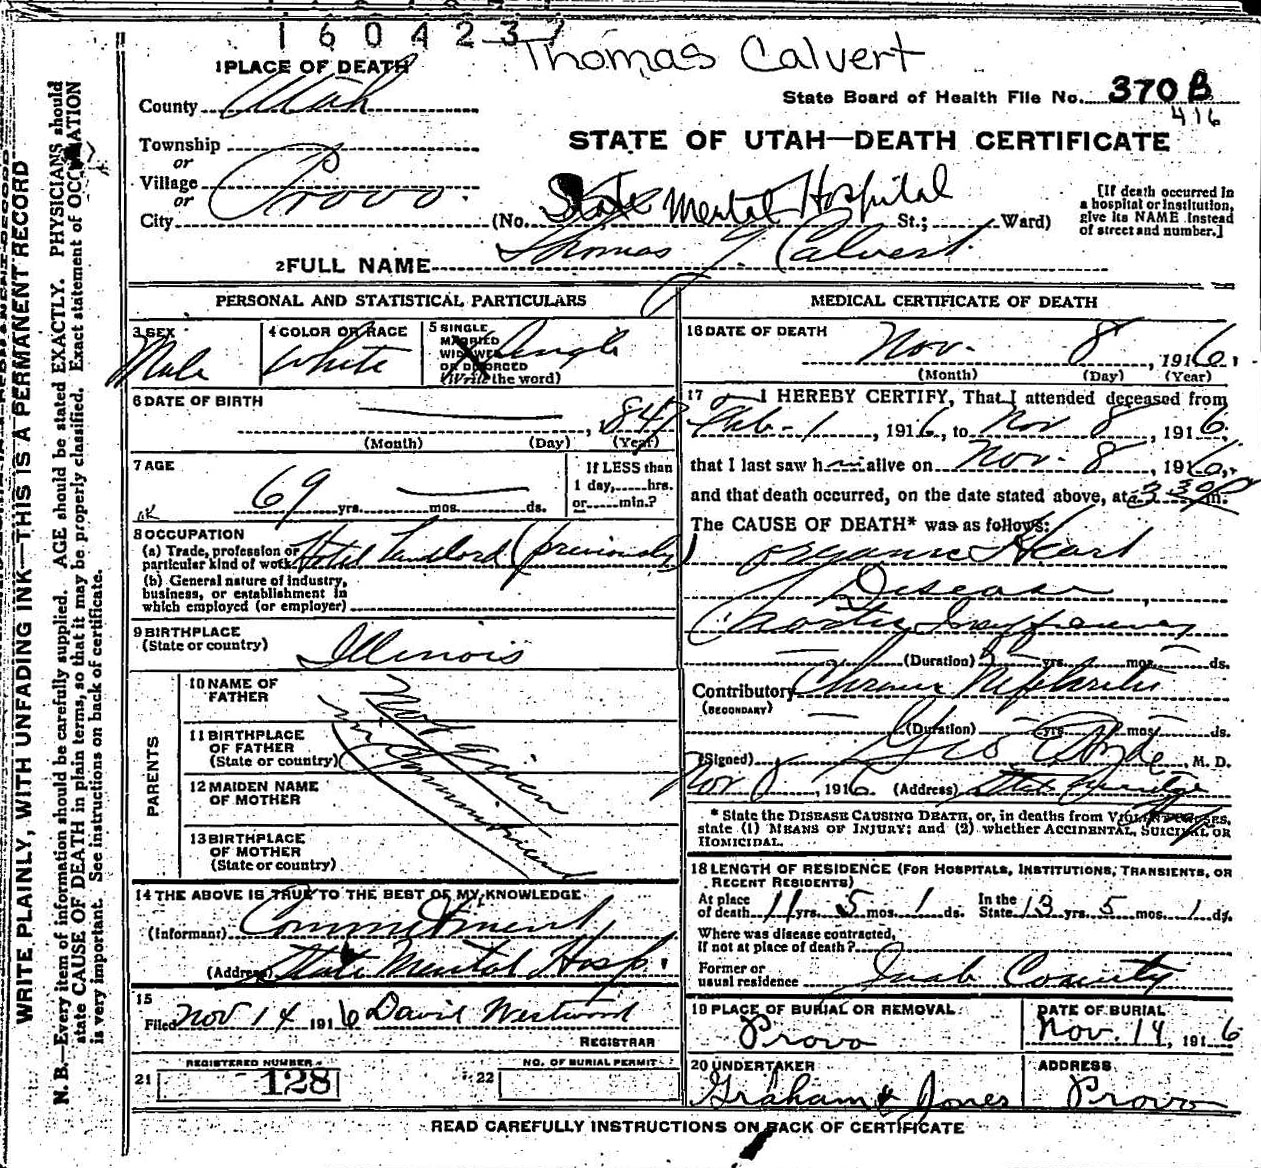 160423
Thomas Calvert
1 PLACE OF DEATH
County Utah
State Board of Health File No. 370 B
416
STATE OF UTAH—DEATH CERTIFICATE
Township
or
Village
or
City Provo.
(No. State Mental Hospital St.; Ward)
[If death occurred in
a hospital or institution,
give its NAME instead
of street and number.]
2 FULL NAME Thomas J. Calvert
PERSONAL AND STATISTICAL PARTICULARS
3 SEX
Male
4 COLOR OR RACE
White
5 SINGLE
MARRIED
WIDOWED
OR DIVORCED
(Write the word)
Single
6 DATE OF BIRTH
, 847
(Month) (Day) (Year)
7 AGE
69 yrs. mos. ds.
If LESS than
1 day, hrs.
or min.?
8 OCCUPATION
(a) Trade, profession or
particular kind of work Hotel Landlord (previously)
(b) General nature of industry,
business, or establishment in
which employed (or employer)
9 BIRTHPLACE
(State or country) Illinois
PARENTS
10 NAME OF
FATHER
11 BIRTHPLACE
OF FATHER
(State or country)
12 MAIDEN NAME
OF MOTHER
13 BIRTHPLACE
OF MOTHER
(State or country)
Not Given
in Commitment
14 THE ABOVE IS TRUE TO THE BEST OF MY KNOWLEDGE
(Informant) Commitment
(Address) State Mental Hosp.
15
Filed Nov 14 1916 David Westwood
REGISTRAR
21 REGISTERED NUMBER
128
22 NO. OF BURIAL PERMIT
MEDICAL CERTIFICATE OF DEATH
16 DATE OF DEATH
Nov. 8, 1916.
(Month) (Day) (Year)
17 I HEREBY CERTIFY, That I attended deceased from
Feb-1, 1916, to Nov 8, 1916,
that I last saw him alive on Nov-8, 1916,
and that death occurred, on the date stated above, at 3 30 P m.
The CAUSE OF DEATH* was as follows:
Organic Heart
Disease
(Duration) yrs. mos. ds.
Contributory Chronic Nephritis
(SECONDARY)
(Duration) yrs. mos. ds.
(Signed) Geo Hyde, M. D.
Nov 8, 1916. (Address)
* State the DISEASE CAUSING DEATH, or, in deaths from VIOLENT CAUSES,
state (1) MEANS OF INJURY; and (2) whether ACCIDENTAL, SUICIDAL OR
HOMICIDAL.
18 LENGTH OF RESIDENCE (FOR HOSPITALS, INSTITUTIONS, TRANSIENTS, OR
RECENT RESIDENTS)
At place
of death 11 yrs. 5 mos. 1 ds.
In the
State 13 yrs. 5 mos. 1 ds.
Where was disease contracted,
if not at place of death?
Former or
usual residence Juab County
19 PLACE OF BURIAL OR REMOVAL
Provo
DATE OF BURIAL
Nov. 14, 1916
20 UNDERTAKER
Graham & Jones
ADDRESS
Provo
READ CAREFULLY INSTRUCTIONS ON BACK OF CERTIFICATE
WRITE PLAINLY, WITH UNFADING INK—THIS IS A PERMANENT RECORD
N. B.—Every item of information should be carefully supplied. AGE should be stated EXACTLY. PHYSICIANS should
state CAUSE OF DEATH in plain terms, so that it may be properly classified. Exact statement of OCCUPATION
is very important. See instructions on back of certificate.